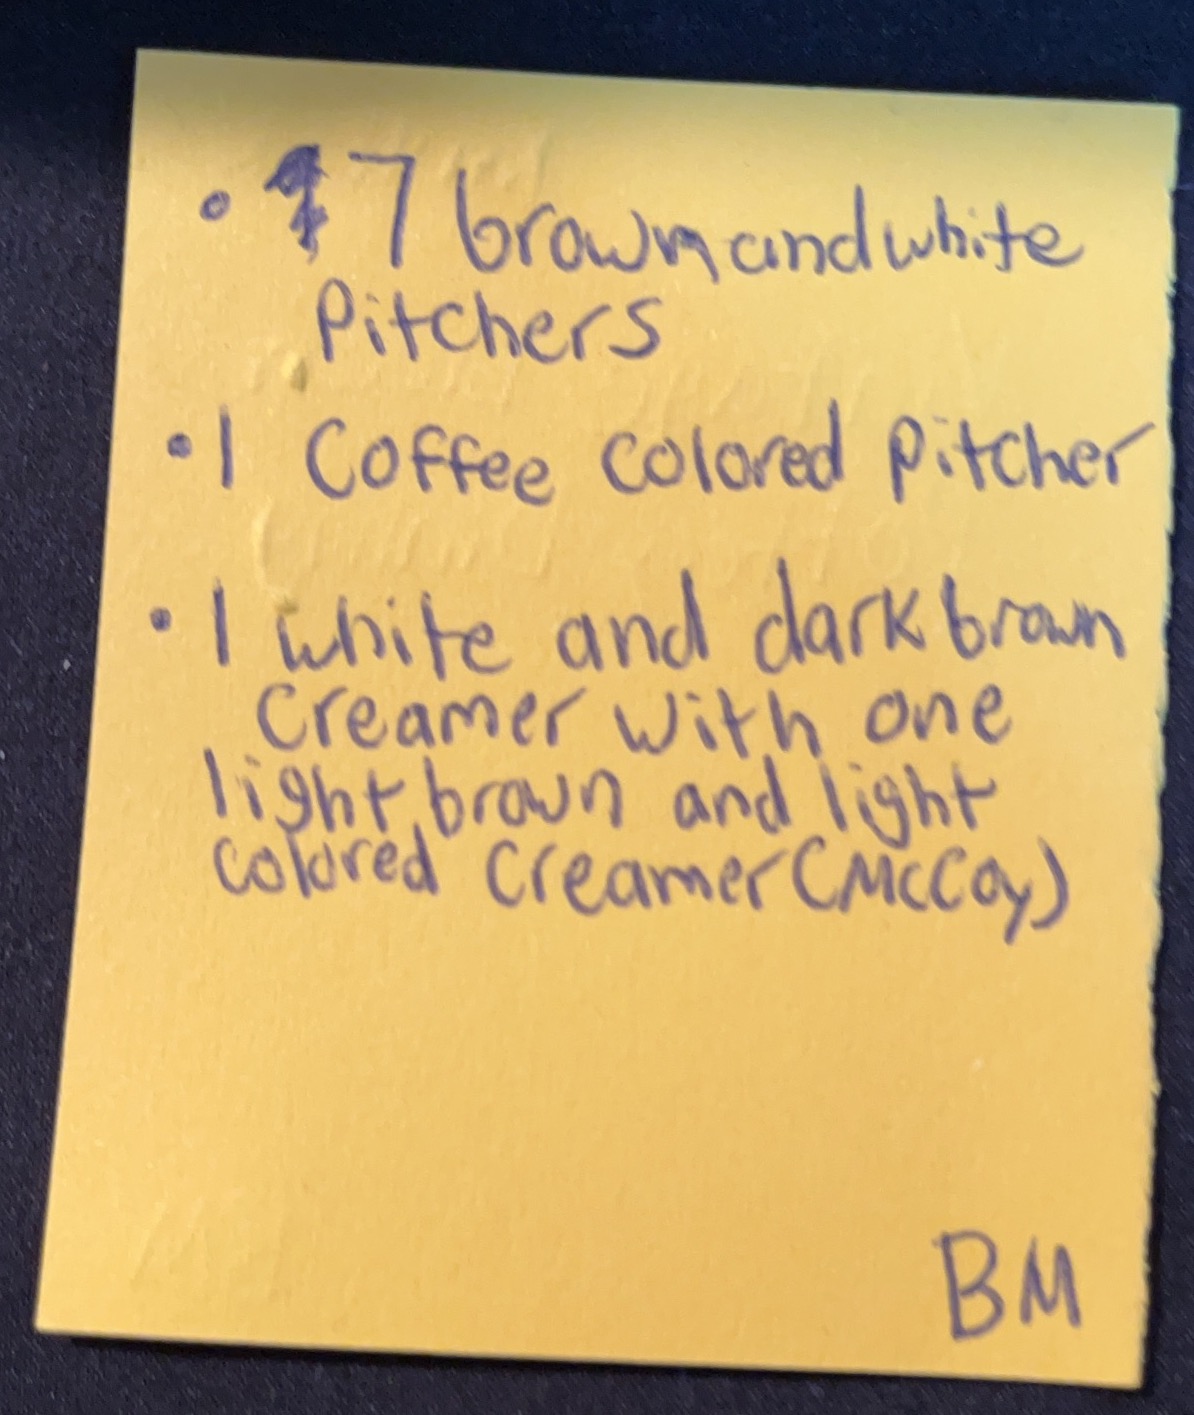 • 7 brown and white
Pitchers
• 1 Coffee colored pitcher
• 1 white and dark brown
Creamer with one
light brown and light
colored Creamer (McCoy)
BM